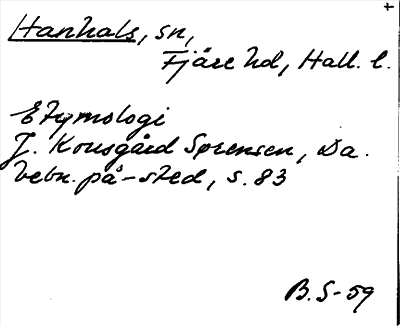 Hanhals, sn,
Fjäre hd, Hall. l.
Etymologi
J. Kousgård Sørensen, Da.
bebn. på -sted, s. 83
B. S-59